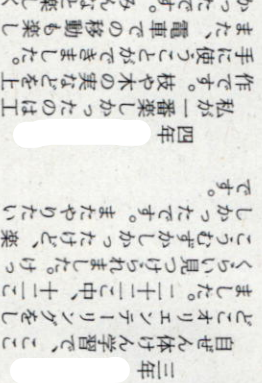 三年
自ぜん体けん学習で、ここ
どこオリエンテーリングをし
ました。二十二こ中、十二こ
くらい見つけられました。けっ
こうむずかしかったけど、楽
しかったです。またやりたい
です。
四年
私が一番楽しかったのは工
作です。枝や木の実などを上
手に使うことができました。
また、電車での移動も楽し
かった